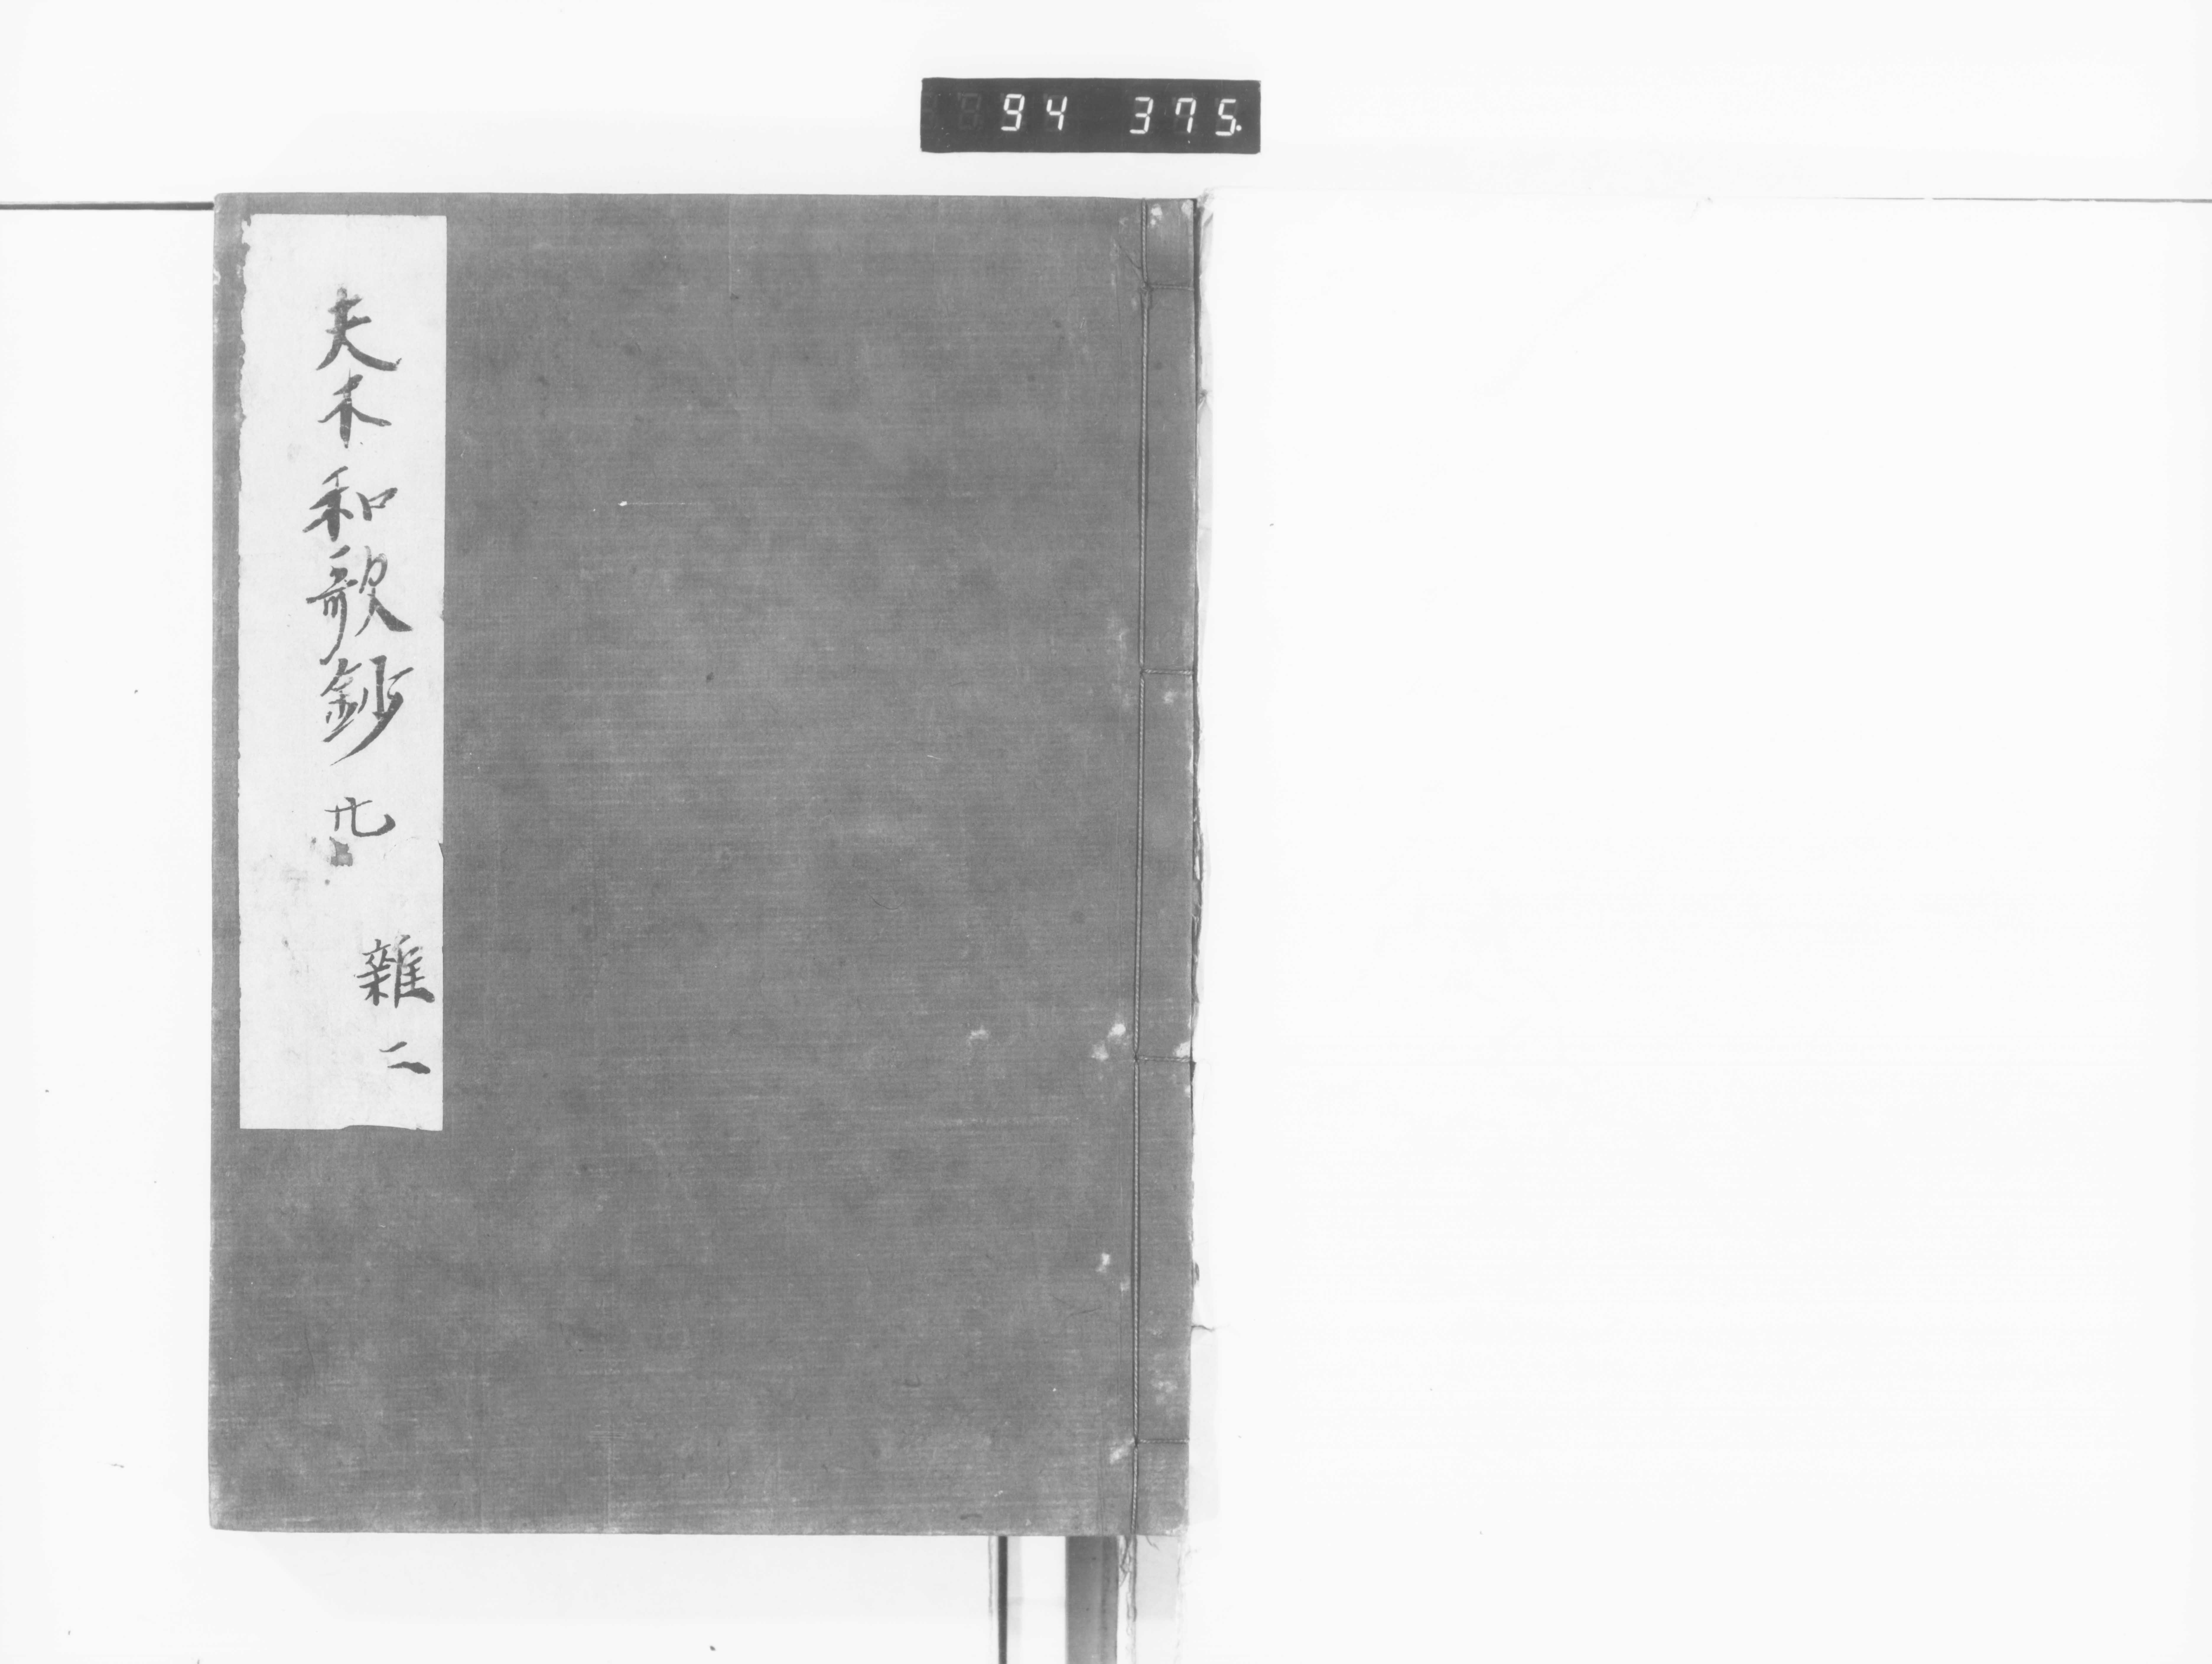 94 375.
夫木和歌鈔 廿
雜二